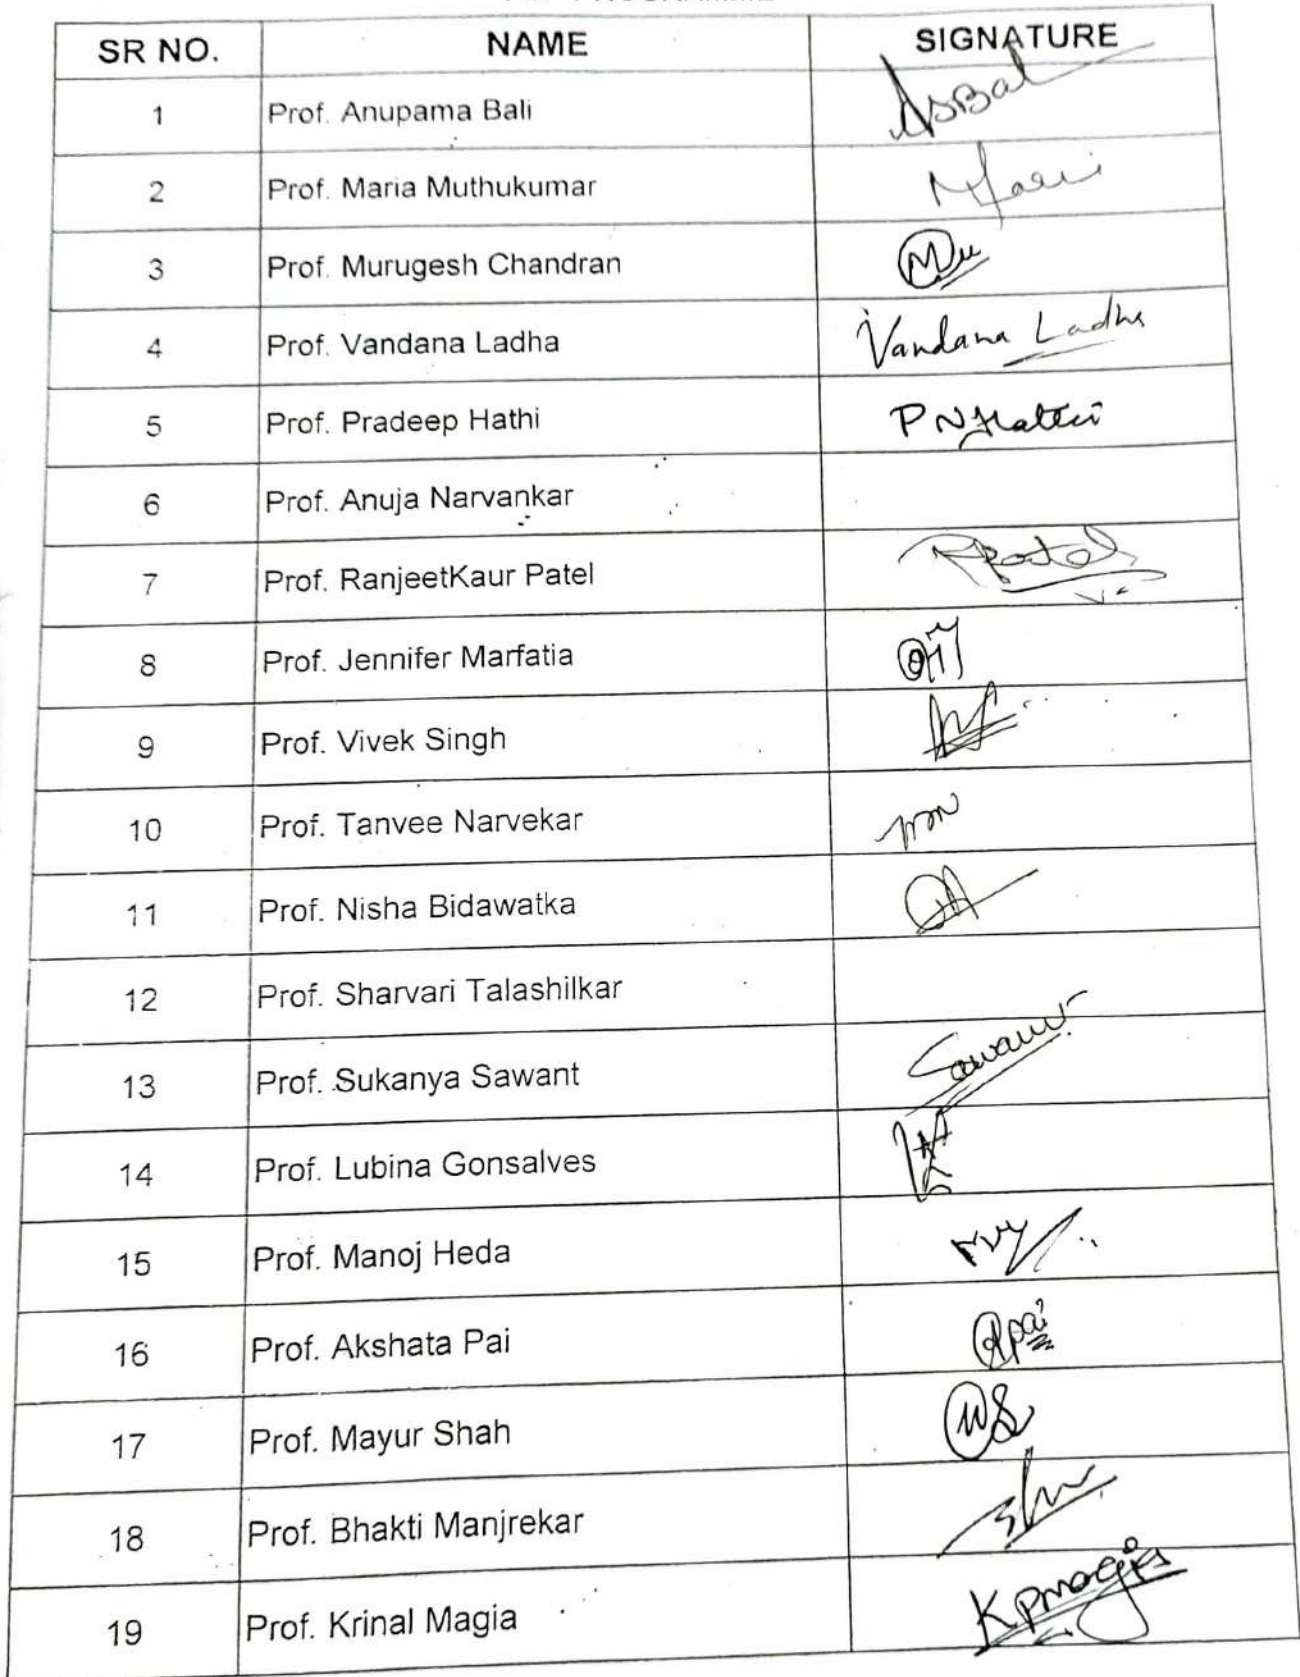 SR NO. NAME SIGNATURE
1 Prof. Anupama Bali ASBal
2 Prof. Maria Muthukumar
3 Prof. Murugesh Chandran
4 Prof. Vandana Ladha Vandana Ladha
5 Prof. Pradeep Hathi P N Hathi
6 Prof. Anuja Narvankar
7 Prof. RanjeetKaur Patel
8 Prof. Jennifer Marfatia
9 Prof. Vivek Singh
10 Prof. Tanvee Narvekar
11 Prof. Nisha Bidawatka
12 Prof. Sharvari Talashilkar
13 Prof. Sukanya Sawant Sawant
14 Prof. Lubina Gonsalves
15 Prof. Manoj Heda
16 Prof. Akshata Pai Apai
17 Prof. Mayur Shah
18 Prof. Bhakti Manjrekar
19 Prof. Krinal Magia Kpmagia